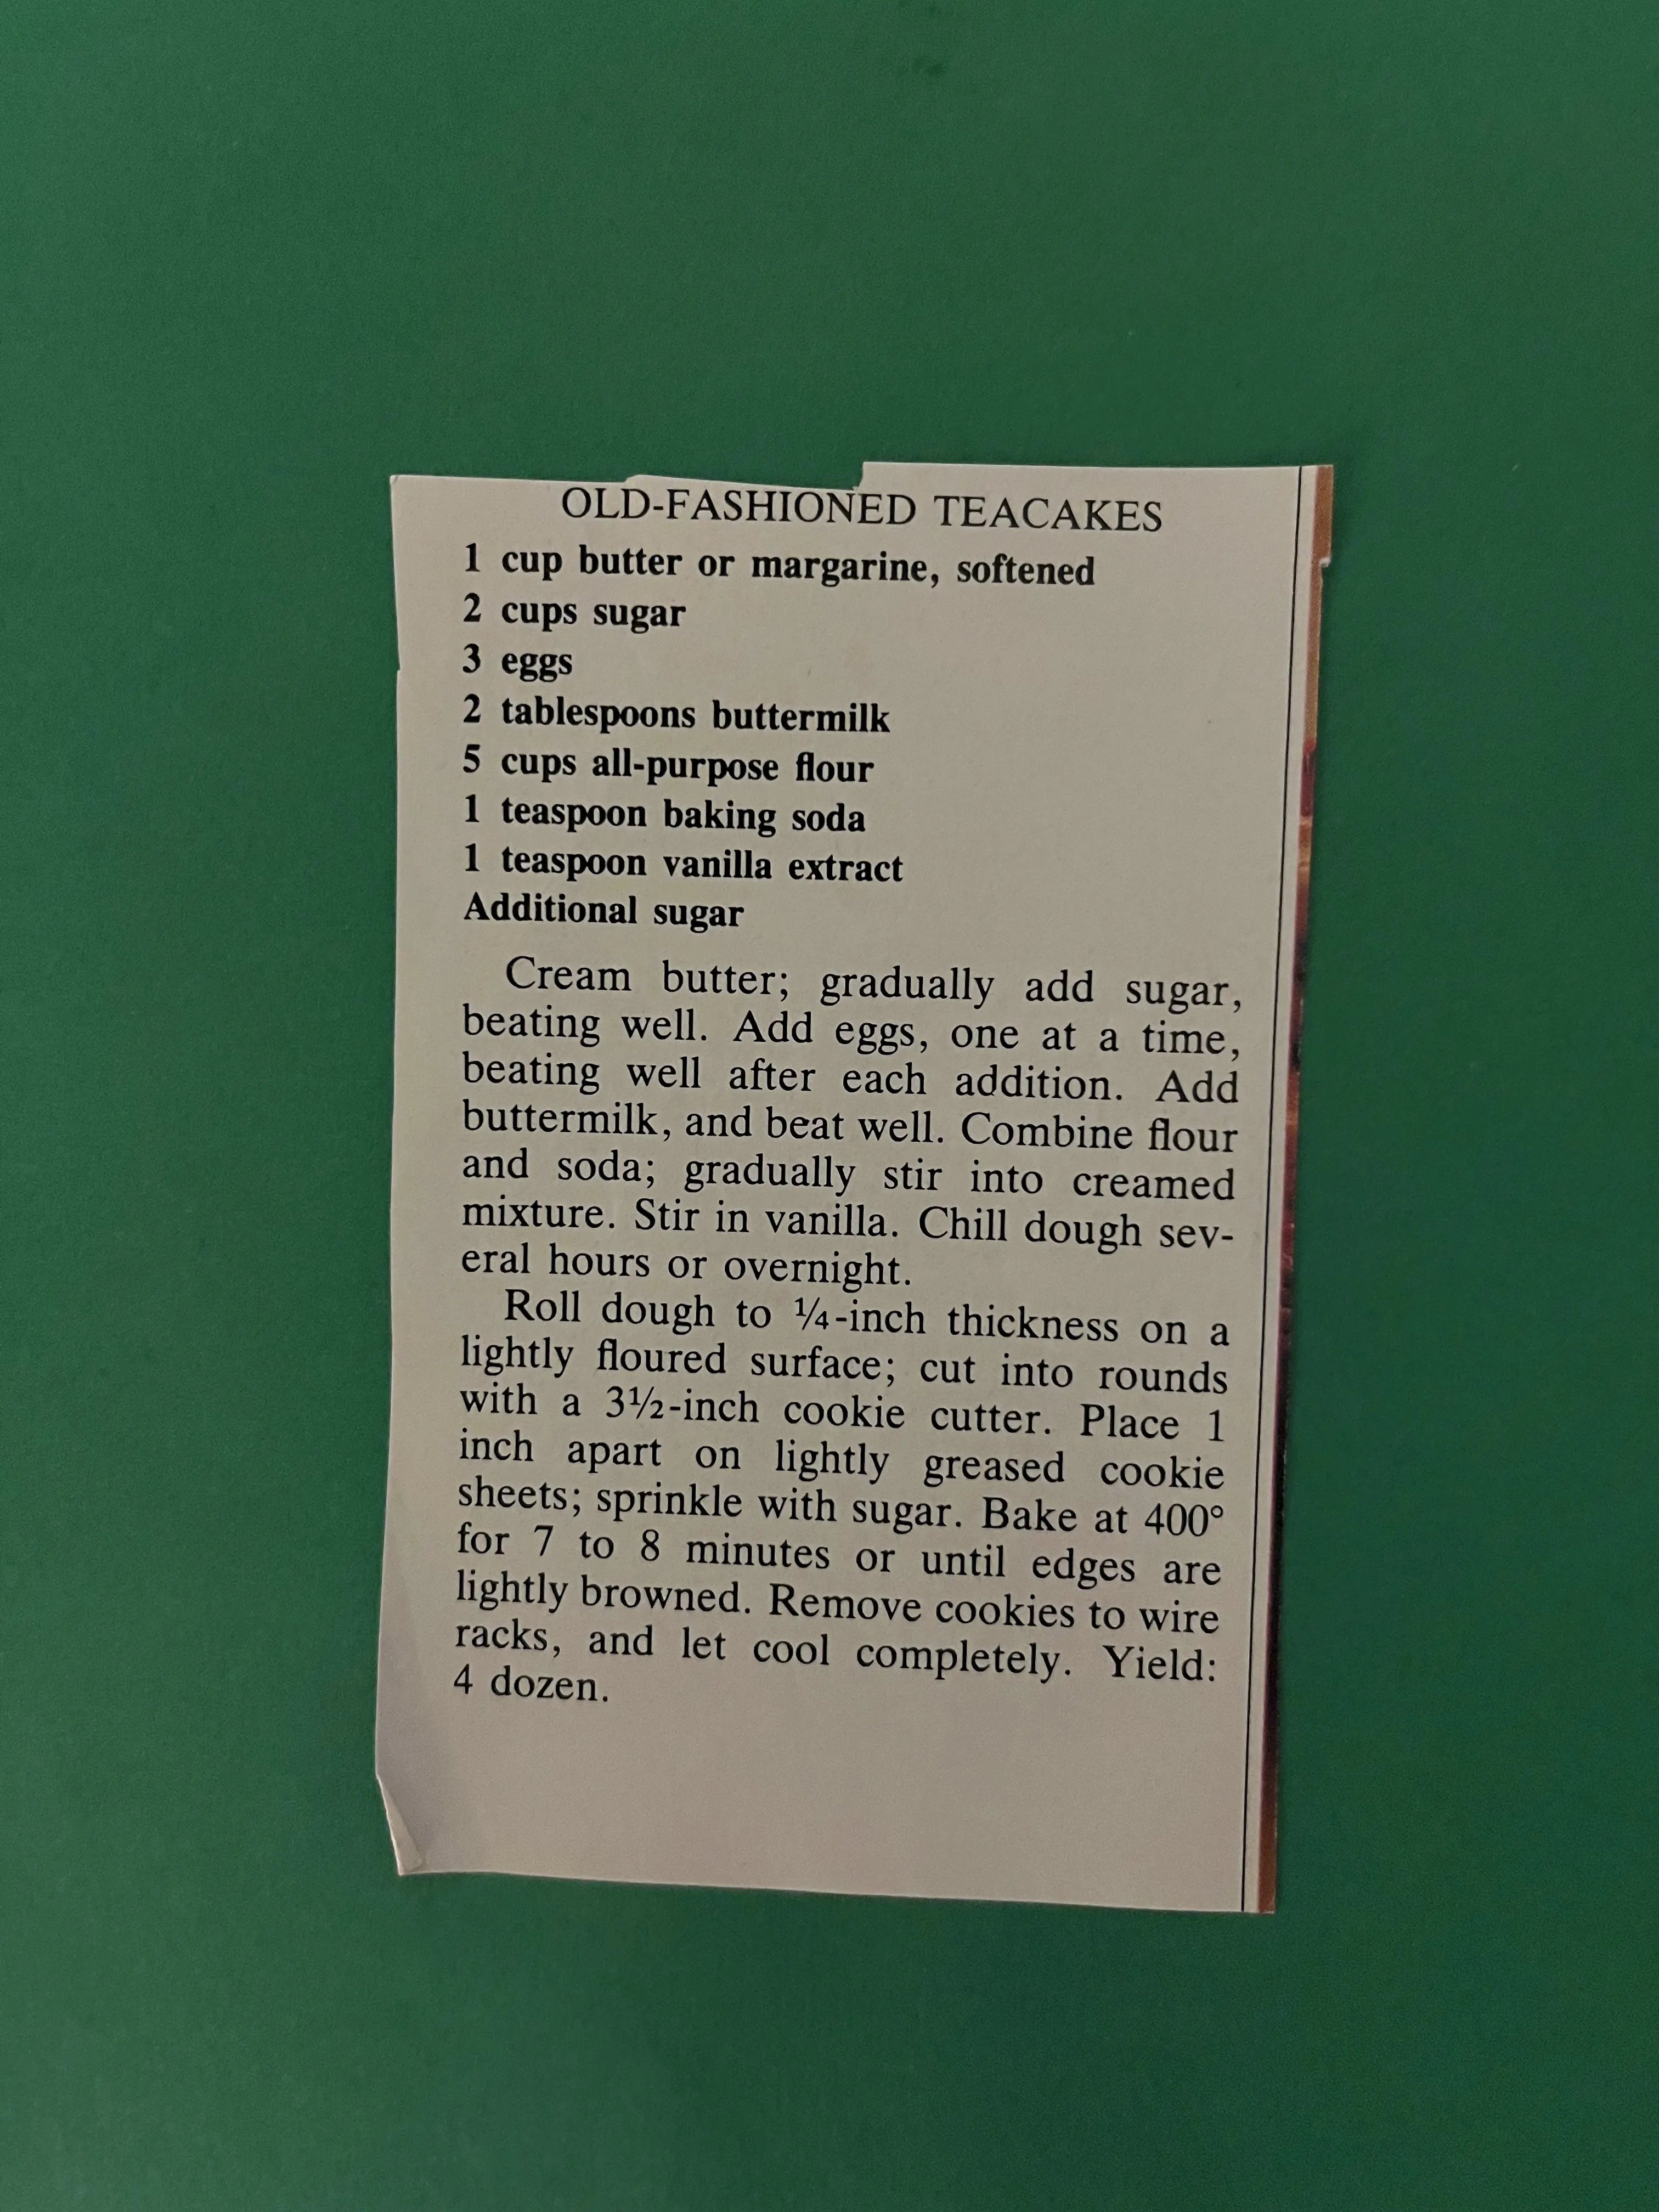 OLD-FASHIONED TEACAKES
1 cup butter or margarine, softened
2 cups sugar
3 eggs
2 tablespoons buttermilk
5 cups all-purpose flour
1 teaspoon baking soda
1 teaspoon vanilla extract
Additional sugar
Cream butter; gradually add sugar,
beating well. Add eggs, one at a time,
beating well after each addition. Add
buttermilk, and beat well. Combine flour
and soda; gradually stir into creamed
mixture. Stir in vanilla. Chill dough sev-
eral hours or overnight.
Roll dough to ¼-inch thickness on a
lightly floured surface; cut into rounds
with a 3½-inch cookie cutter. Place 1
inch apart on lightly greased cookie
sheets; sprinkle with sugar. Bake at 400°
for 7 to 8 minutes or until edges are
lightly browned. Remove cookies to wire
racks, and let cool completely. Yield:
4 dozen.